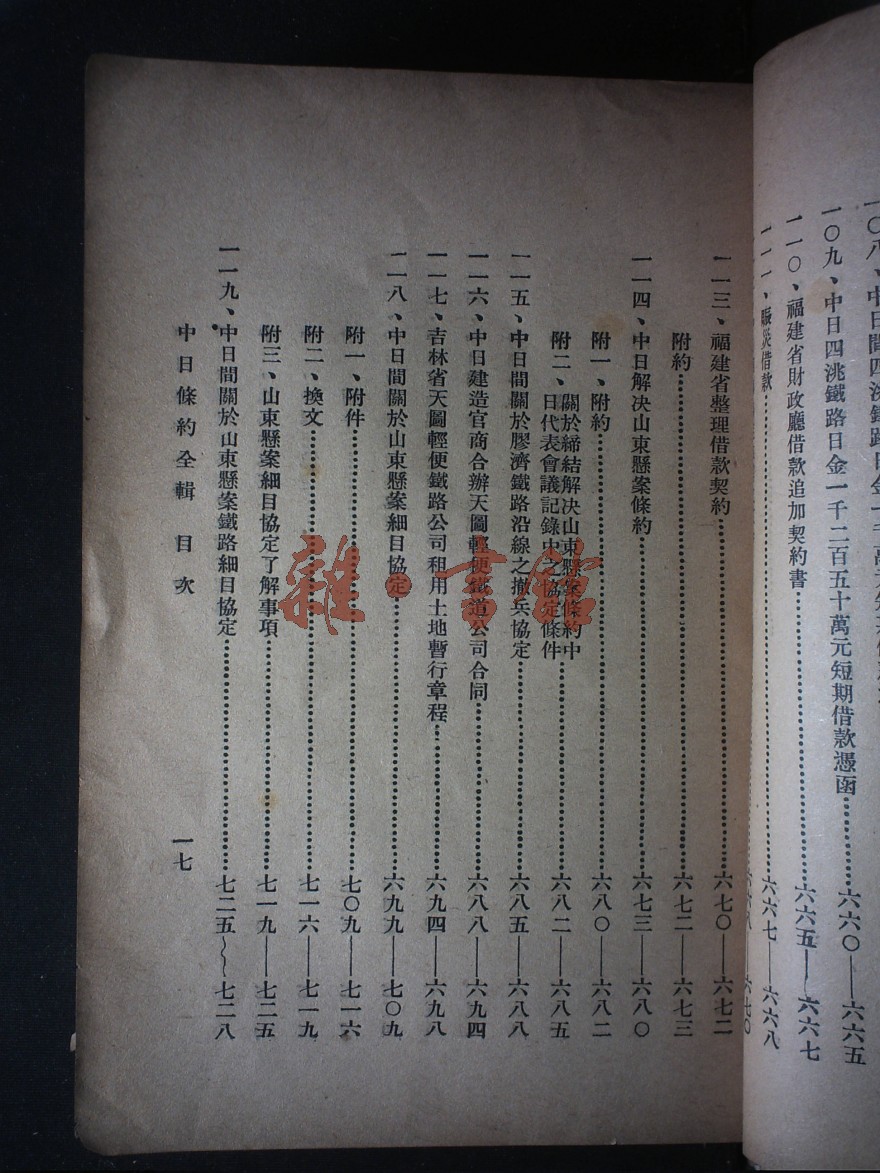 一〇九、中日四洮鐵路日金一千二百五十萬元短期借款憑函…………六六〇——六六五
一一〇、福建省財政廳借款追加契約書…………六六五——六六七
一一一、賑災借款…………六六七——六六八
六六八——六七〇
一一三、福建省整理借款契約…………六七〇——六七二
附約…………六七二——六七三
一一四、中日解決山東懸案條約…………六七三——六八〇
附一、附約…………六八〇——六八二
附二、關於締結解決山東懸案條約中
日代表會議記錄中之協定條件…………六八二——六八五
一一五、中日間關於膠濟鐵路沿線之撤兵協定…………六八五——六八八
一一六、中日建造官商合辦天圖輕便鐵道公司合同…………六八八——六九四
一一七、吉林省天圖輕便鐵路公司租用土地暫行章程…………六九四——六九八
一一八、中日間關於山東懸案細目協定…………六九九——七〇九
附一、附件…………七〇九——七一六
附二、換文…………七一六——七一九
附三、山東懸案細目協定了解事項…………七一九——七二五
一一九、中日間關於山東懸案鐵路細目協定…………七二五~七二八
中日條約全輯 目次 一七
雜·書館